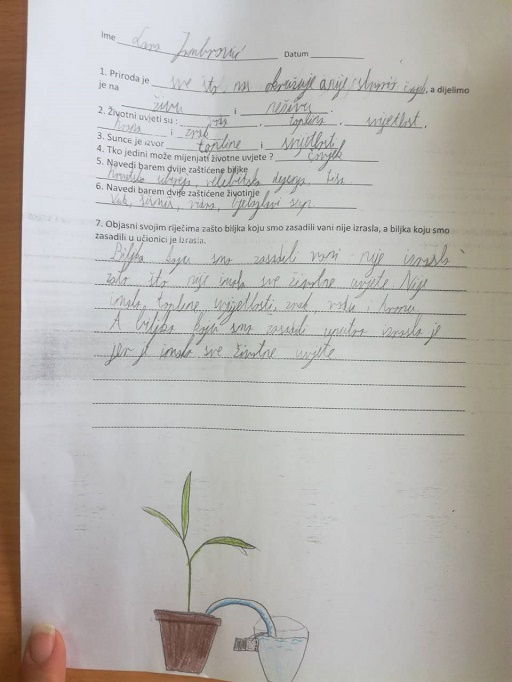 Ime Lara Jambrović Datum
1. Priroda je sve što nas okružuje a nije stvorio čovjek, a dijelimo
je na živu i neživu.
2. Životni uvjeti su : voda, toplina, svjetlost,
hrana i zrak
3. Sunce je izvor topline i svjetlosti
4. Tko jedini može mijenjati životne uvjete ? čovjek
5. Navedi barem dvije zaštićene biljke
hrvatska sibireja, velebitska degenija, tisa
6. Navedi barem dvije zaštićene životinje
Vuk, vidra, bjeloglavi sup
7. Objasni svojim riječima zašto biljka koju smo zasadili vani nije izrasla, a biljka koju smo
zasadili u učionici je izrasla.
Biljka koju smo zasadili vani nije izrasla
zato što nije imala sve životne uvjete. Nije
imala, topline svijetlosti, zrak, vodu i hranu.
A biljka koju smo zasadili unutra izrasla je
jer je imala sve životne uvjete